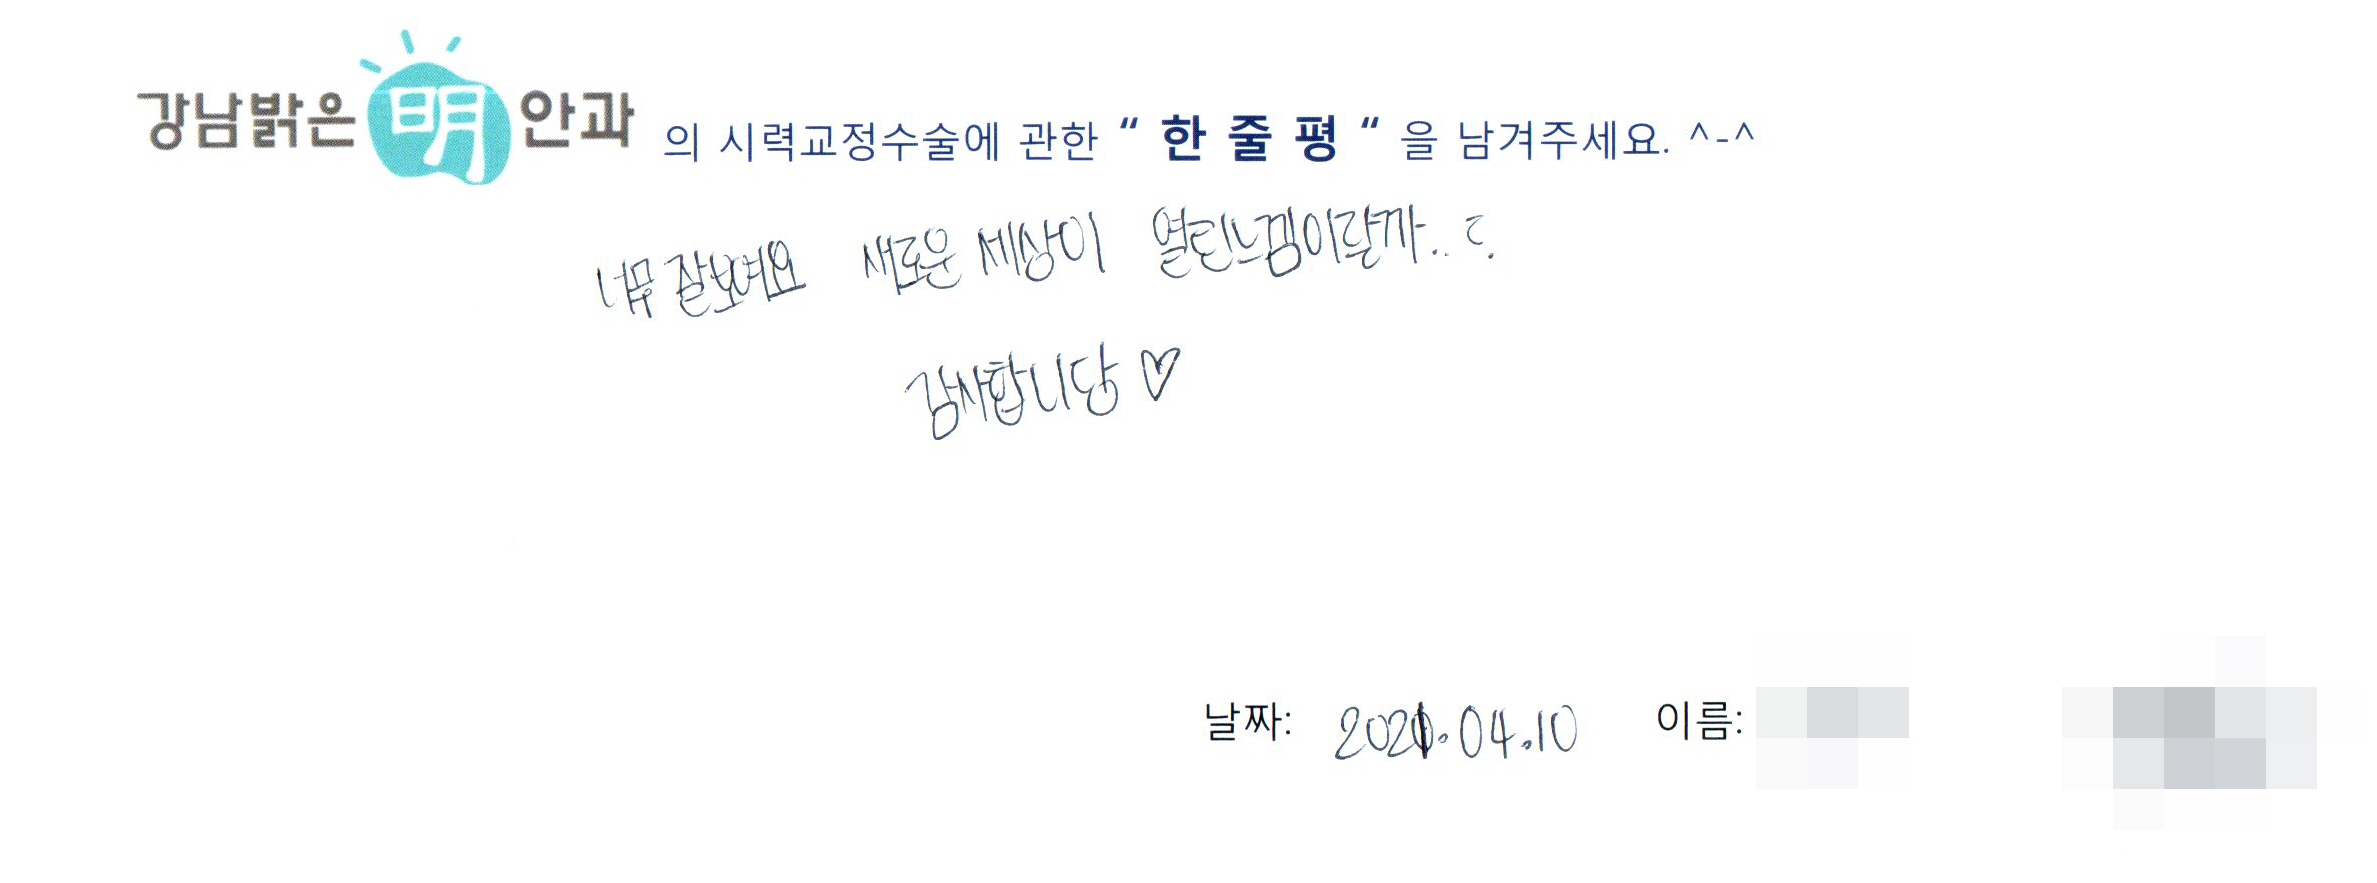 강남밝은 明 안과 의 시력교정수술에 관한 “ 한 줄 평 “ 을 남겨주세요. ^-^
너무 잘보여요 새로운 세상이 열린느낌이랄까..?
감사합니당 ♡
날짜: 2021.04.10 이름: